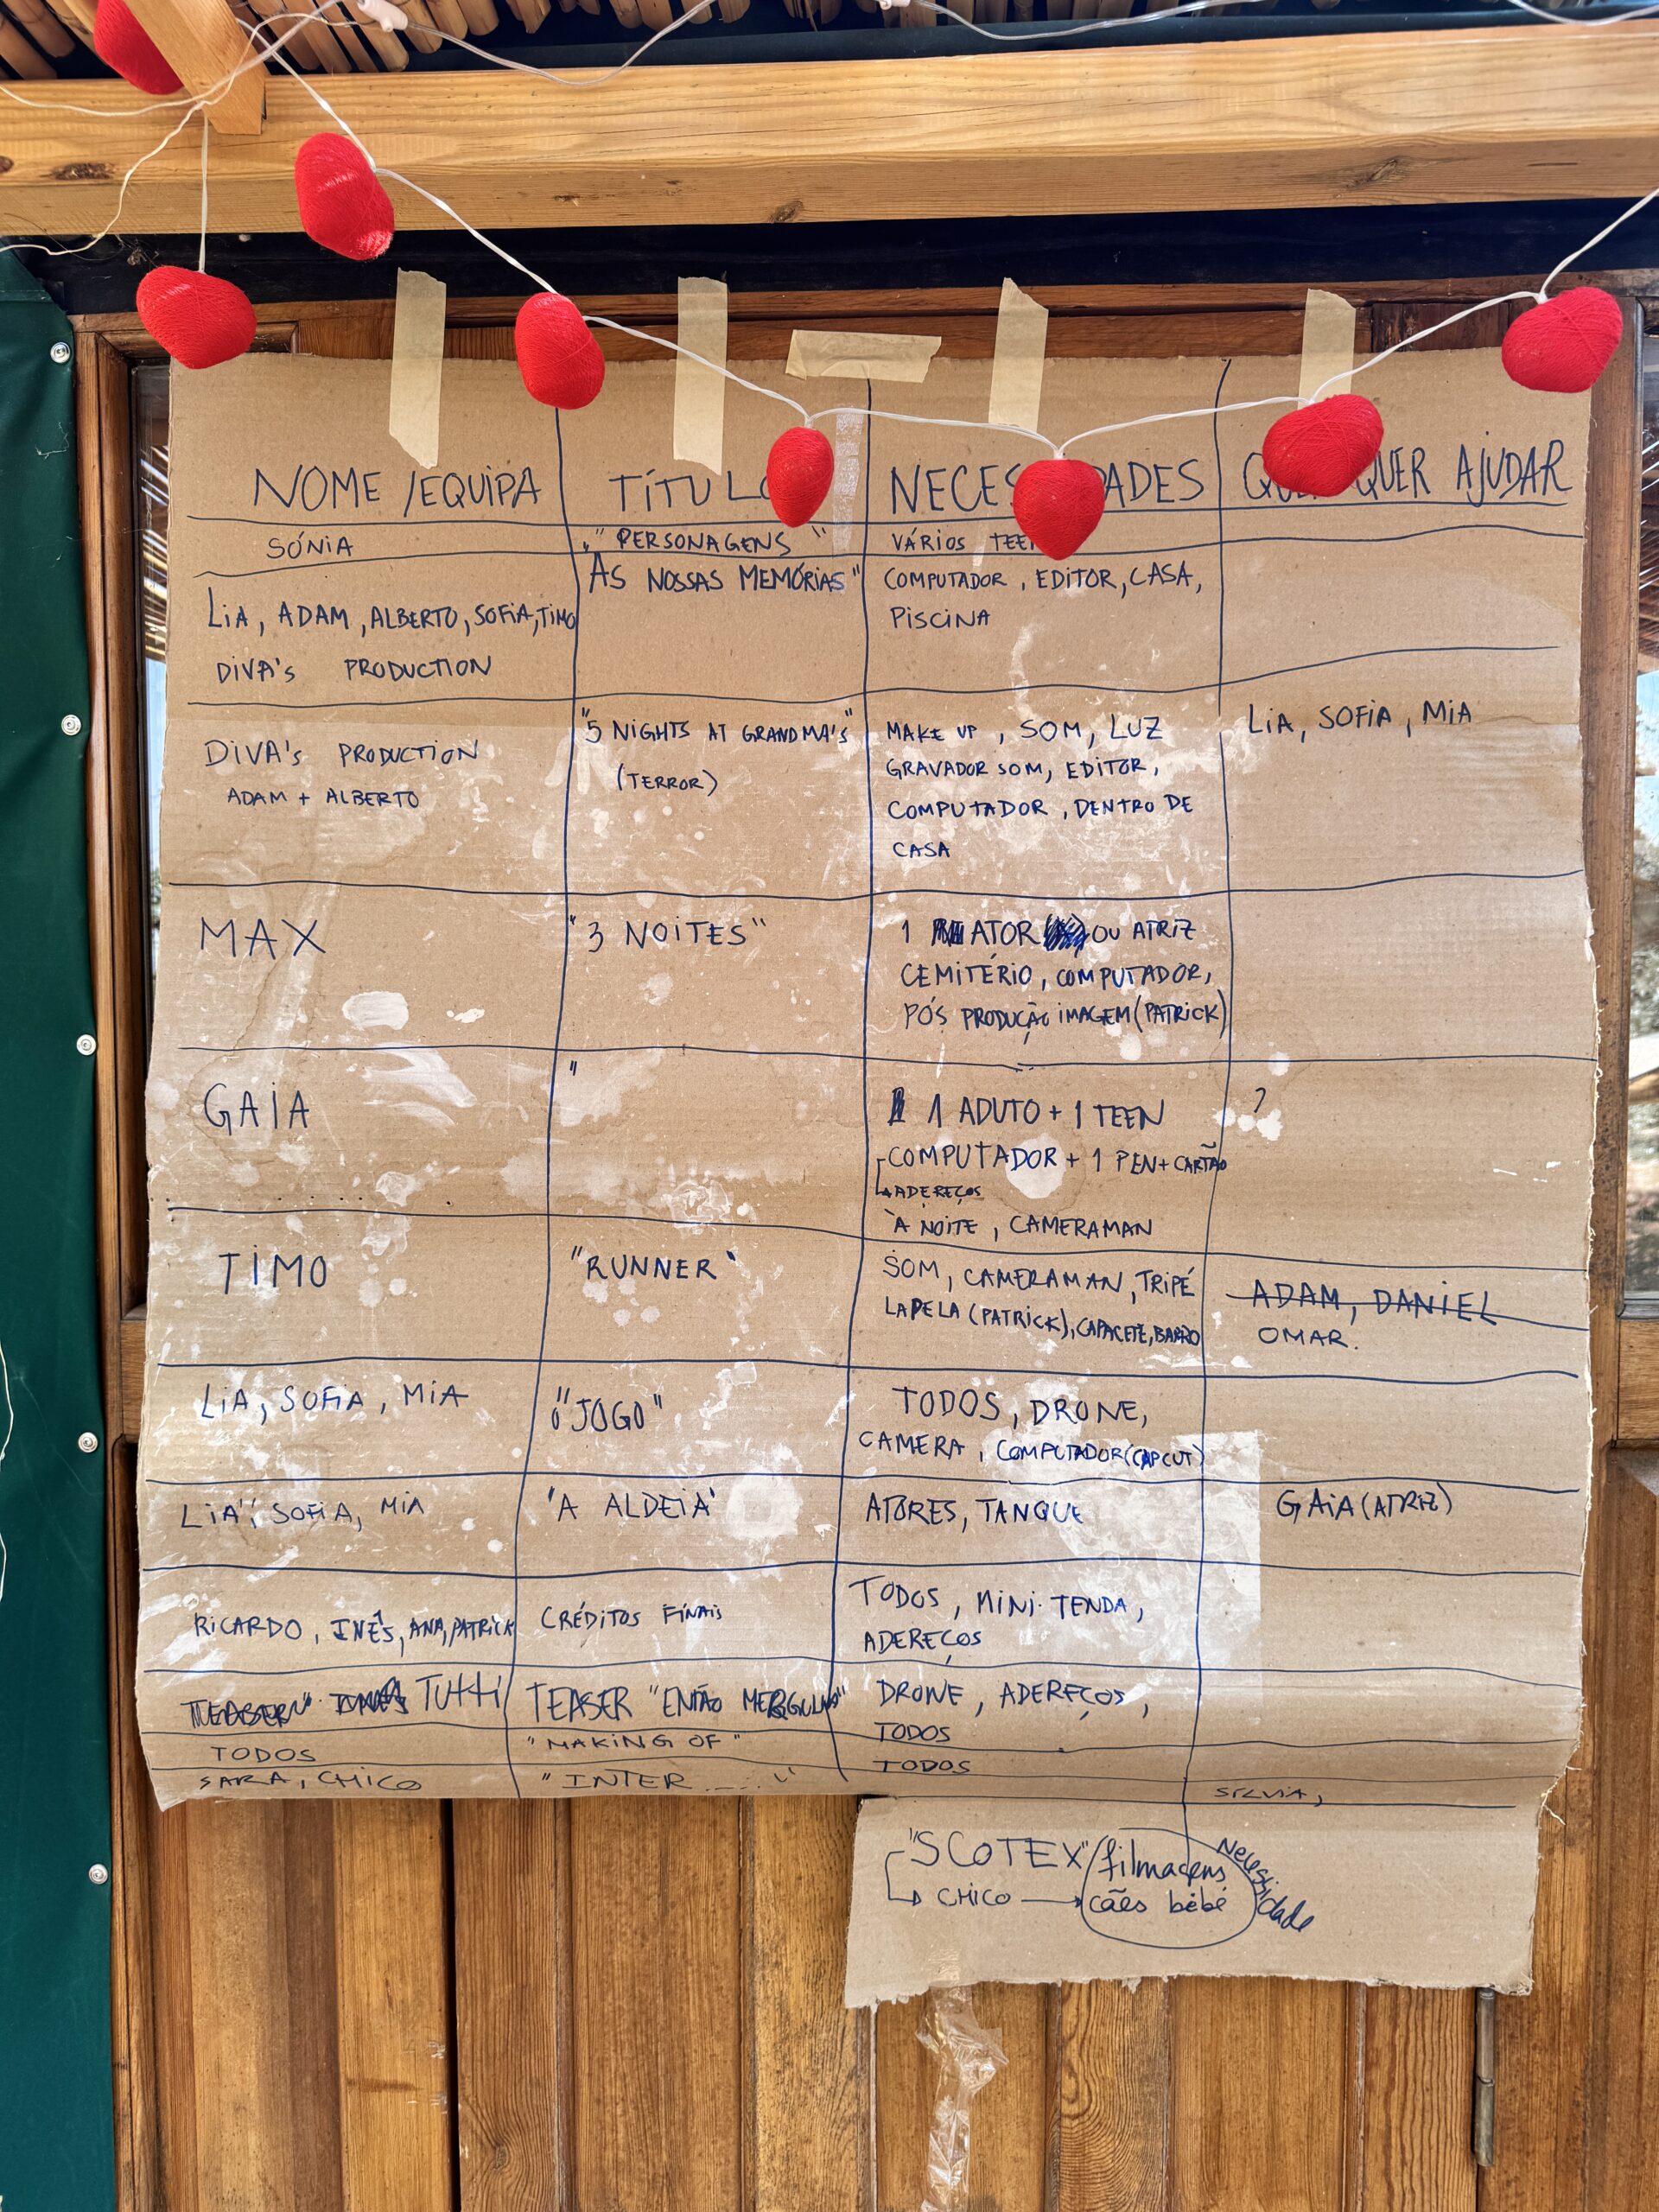 NOME /EQUIPA
TÍTULO
NECES ADES
QUER AJUDAR
SÓNIA
"PERSONAGENS"
VÁRIOS TEEN
LIA, ADAM, ALBERTO, SOFIA, TIMO
DIVA's PRODUCTION
AS NOSSAS MEMÓRIAS"
COMPUTADOR, EDITOR, CASA,
PISCINA
DIVA's PRODUCTION
ADAM + ALBERTO
"5 NIGHTS AT GRANDMA's"
(TERROR)
MAKE UP, SOM, LUZ
GRAVADOR SOM, EDITOR,
COMPUTADOR, DENTRO DE
CASA
LIA, SOFIA, MIA
MAX
"3 NOITES"
1 ATOR OU ATRIZ
CEMITÉRIO, COMPUTADOR,
PÓS PRODUÇÃO IMAGEM (PATRICK)
GAIA
"
1 ADUTO + 1 TEEN
COMPUTADOR + 1 PEN + CARTÃO
ADEREÇOS
À NOITE, CAMERAMAN
?
TIMO
"RUNNER"
SOM, CAMERAMAN, TRIPÉ
LAPELA (PATRICK), CAPACETE, BARRO
ADAM, DANIEL
OMAR.
LIA, SOFIA, MIA
"O JOGO"
TODOS, DRONE,
CAMERA, COMPUTADOR (CAPCUT)
LIA, SOFIA, MIA
"A ALDEIA"
ATORES, TANQUE
GAIA (ATRIZ)
RICARDO, INÊS, ANA, PATRICK
CRÉDITOS FINAIS
TODOS, MINI-TENDA,
ADEREÇOS
TUTTI
TEASER "ENTÃO
DRONE, ADEREÇOS,
TODOS
TODOS
"MAKING OF"
TODOS
SARA, CHICO
"INTER ....."
SILVIA,
"SCOTEX"
CHICO
filmagens
cães bébé
Necessidade